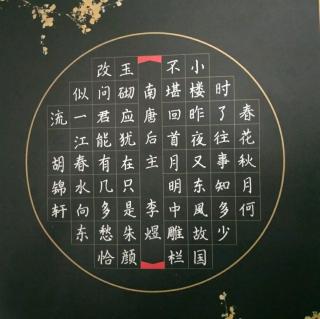 春花秋月何
时了往事知多少
小楼昨夜又东風故国
不堪回首月明中雕栏
南唐后主 李煜
玉砌应犹在只是朱颜
改问君能有几多愁恰
似一江春水向东
流 胡锦轩